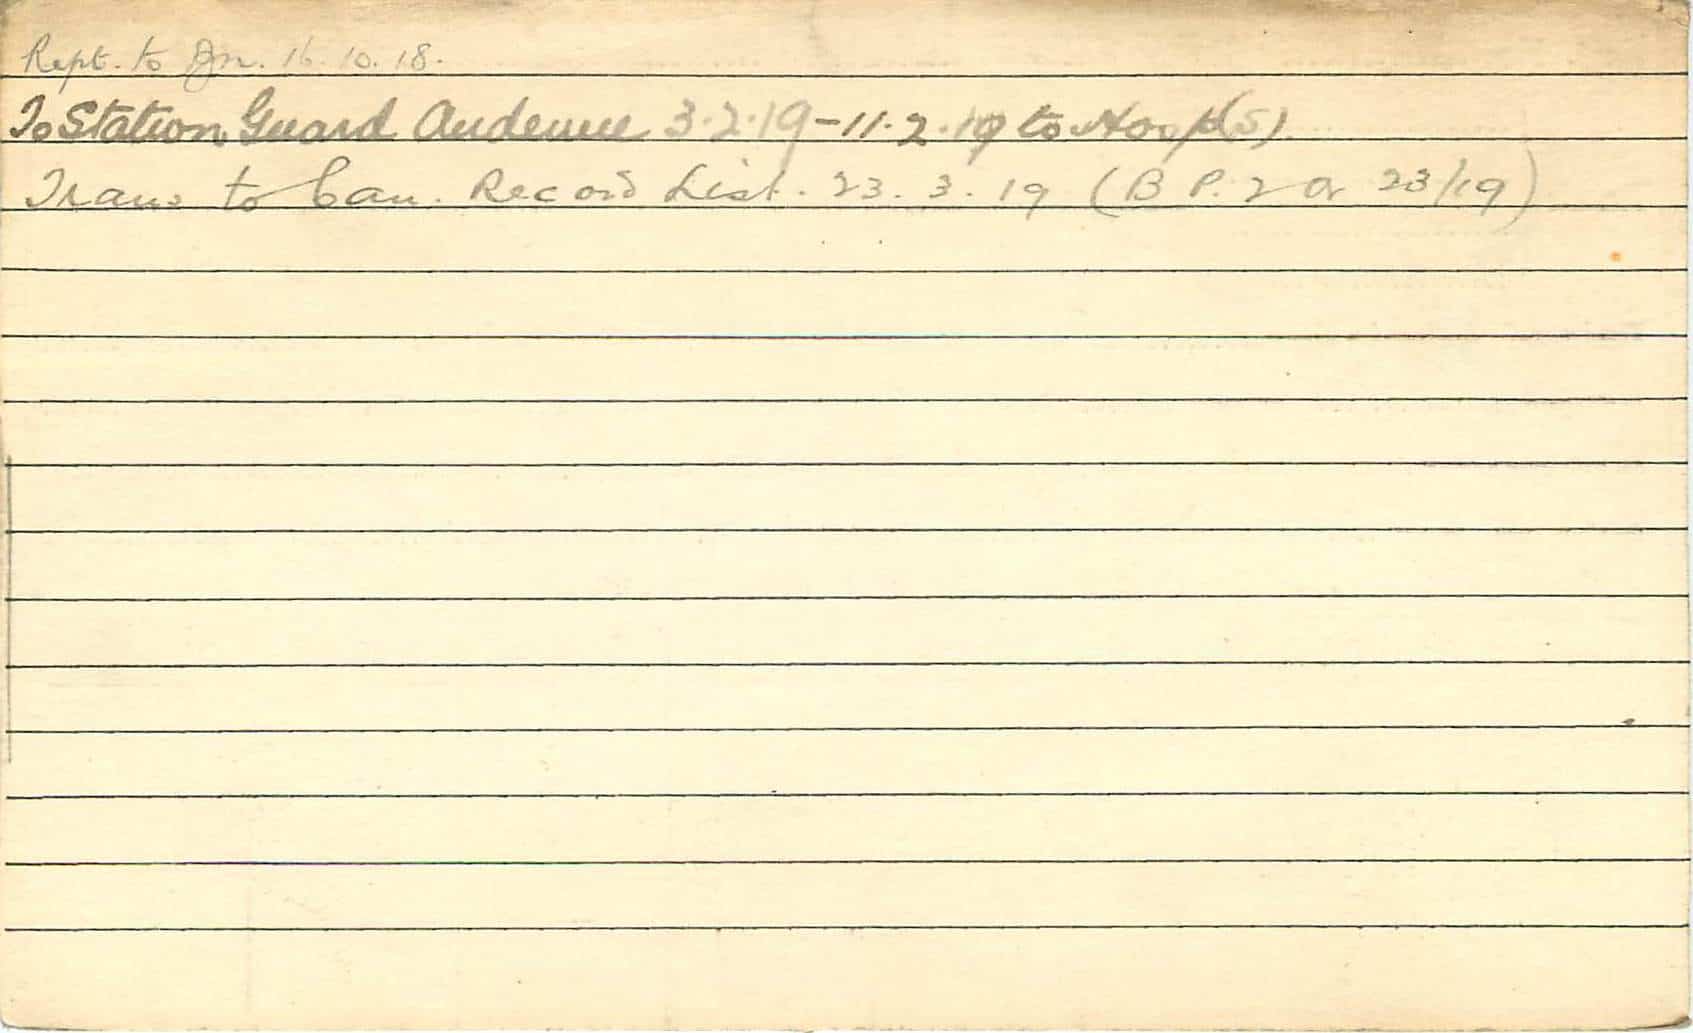 Rept. to Bn. 16.10.18.
To Station Guard Andenne 3.2.19 - 11.2.19 to Hosp(S).
Trans to Can. Record List. 23.3.19 (B P. 2 Or 23/19)